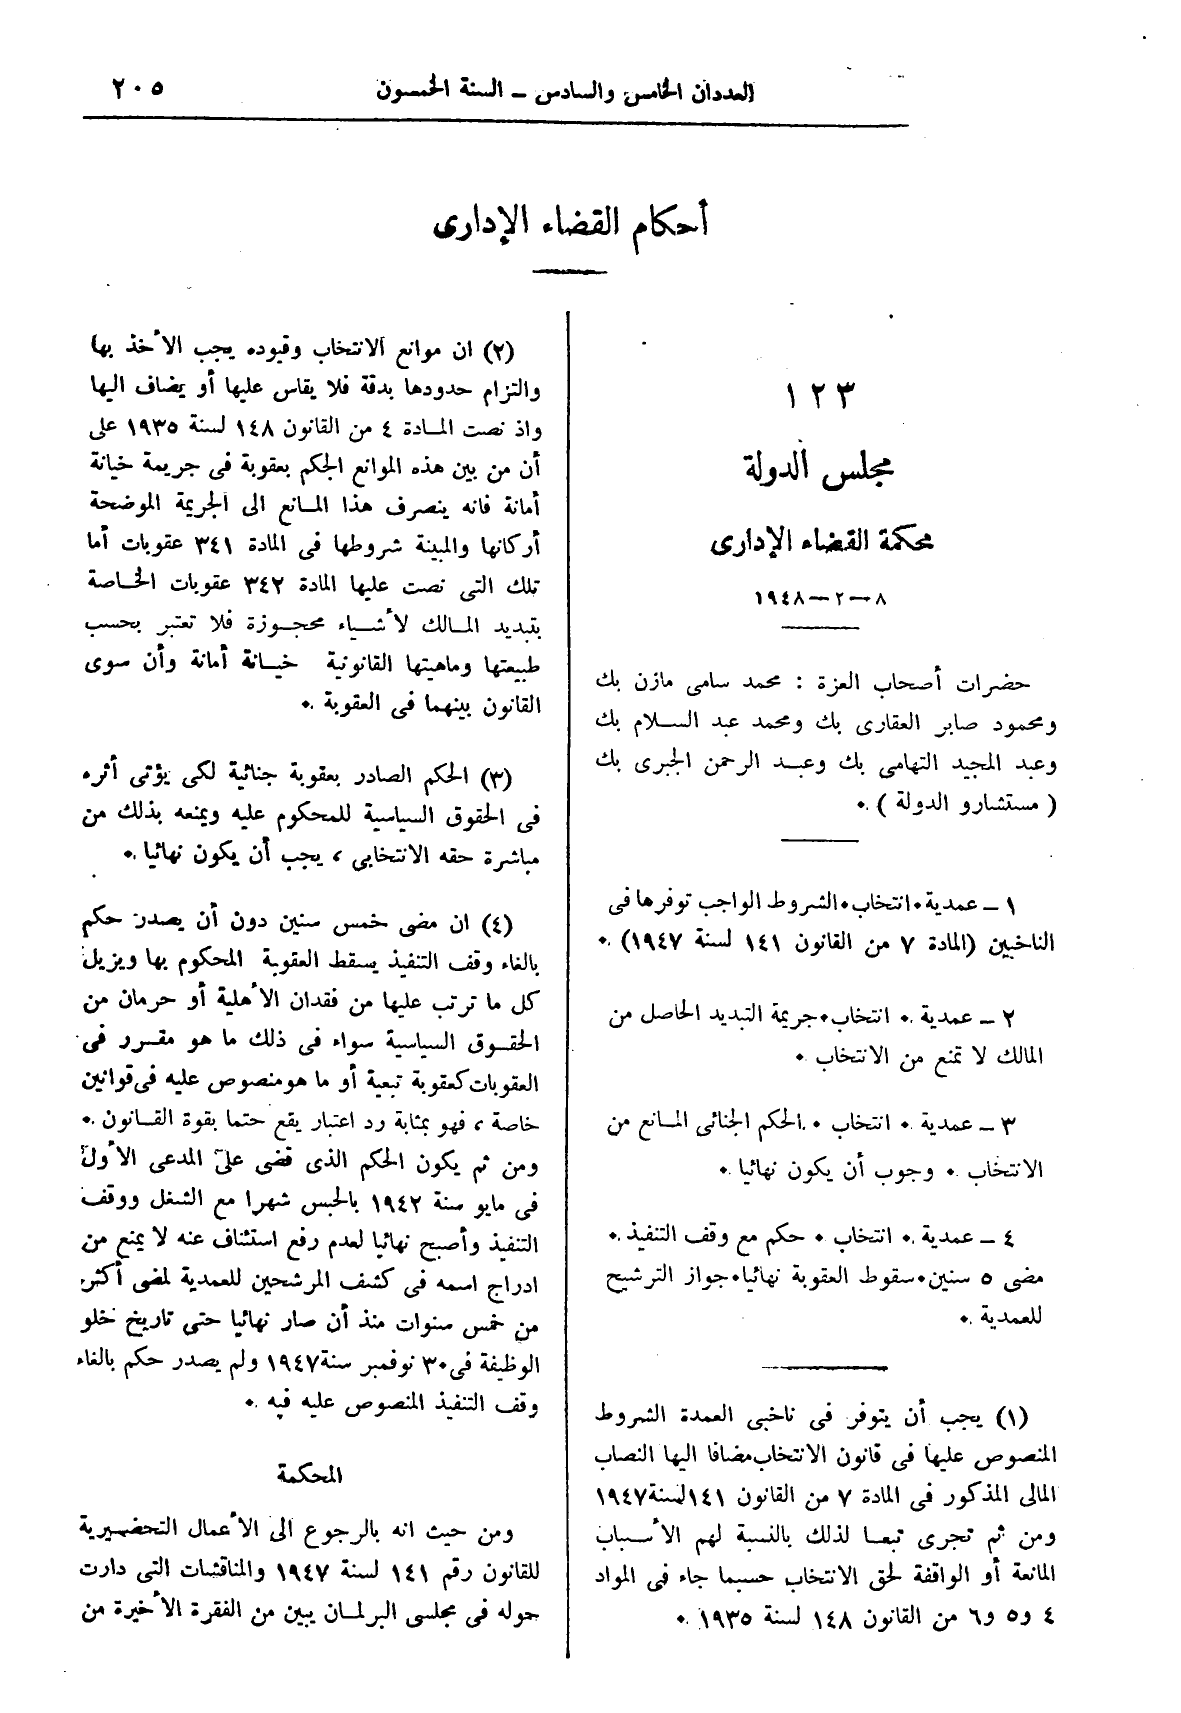 العددان الخامس والسادس – السنة الخمسون
٢٠٥
أحكام القضاء الإدارى
١٢٣
مجلس الدولة
محكمة القضاء الإدارى
٨ – ٢ – ١٩٤٨
حضرات أصحاب العزة : محمد سامى مازن بك
ومحمود صابر العقارى بك ومحمد عبد السلام بك
وعبد المجيد التهامى بك وعبد الرحمن الجبرى بك
( مستشارو الدولة ) .
١ – عمدية . انتخاب . الشروط الواجب توفرها فى
الناخبين (المادة ٧ من القانون ١٤١ لسنة ١٩٤٧) .
٢ – عمدية . انتخاب . جريمة التبديد الحاصل من
المالك لا تمنع من الانتخاب .
٣ – عمدية . انتخاب . الحكم الجنائى المانع من
الانتخاب . وجوب أن يكون نهائيا .
٤ – عمدية . انتخاب . حكم مع وقف التنفيذ .
مضى ٥ سنين . سقوط العقوبة نهائيا . جواز الترشيح
للعمدية .
(١) يجب أن يتوفر فى ناخبى العمدة الشروط
المنصوص عليها فى قانون الانتخاب مضافا اليها النصاب
المالى المذكور فى المادة ٧ من القانون ١٤١ لسنة ١٩٤٧
ومن ثم تجرى تبعا لذلك بالنسبة لهم الأسباب
المانعة أو الواقفة لحق الانتخاب حسبما جاء فى المواد
٤ و٥ و٦ من القانون ١٤٨ لسنة ١٩٣٥ .
(٢) ان موانع الانتخاب وقيوده يجب الأخذ بها
والتزام حدودها بدقة فلا يقاس عليها أو يضاف اليها
واذ نصت المادة ٤ من القانون ١٤٨ لسنة ١٩٣٥ على
أن من بين هذه الموانع الحكم بعقوبة فى جريمة خيانة
أمانة فانه ينصرف هذا المانع الى الجريمة الموضحة
أركانها والمبينة شروطها فى المادة ٣٤١ عقوبات أما
تلك التى نصت عليها المادة ٣٤٢ عقوبات الخاصة
بتبديد المالك لأشياء محجوزة فلا تعتبر بحسب
طبيعتها وماهيتها القانونية خيانة أمانة وأن سوى
القانون بينهما فى العقوبة .
(٣) الحكم الصادر بعقوبة جنائية لكى يؤتى أثره
فى الحقوق السياسية للمحكوم عليه ويمنعه بذلك من
مباشرة حقه الانتخابى ، يجب أن يكون نهائيا .
(٤) ان مضى خمس سنين دون أن يصدر حكم
بالغاء وقف التنفيذ يسقط العقوبة المحكوم بها ويزيل
كل ما ترتب عليها من فقدان الأهلية أو حرمان من
الحقوق السياسية سواء فى ذلك ما هو مقرر فى
العقوبات كعقوبة تبعية أو ما هو منصوص عليه فى قوانين
خاصة ، فهو بمثابة رد اعتبار يقع حتما بقوة القانون .
ومن ثم يكون الحكم الذى قضى على المدعى الأول
فى مايو سنة ١٩٤٢ بالحبس شهرا مع الشغل ووقف
التنفيذ وأصبح نهائيا لعدم رفع استئناف عنه لا يمنع من
ادراج اسمه فى كشف المرشحين للعمدية لمضى أكثر
من خمس سنوات منذ أن صار نهائيا حتى تاريخ خلو
الوظيفة فى ٣٠ نوفمبر سنة ١٩٤٧ ولم يصدر حكم بالغاء
وقف التنفيذ المنصوص عليه فيه .
المحكمة
ومن حيث انه بالرجوع الى الأعمال التحضيرية
للقانون رقم ١٤١ لسنة ١٩٤٧ والمناقشات التى دارت
حوله فى مجلسى البرلمان يبين من الفقرة الأخيرة من